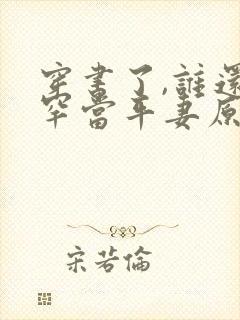 穿書了,誰還
罕當年妻原
宋若倫